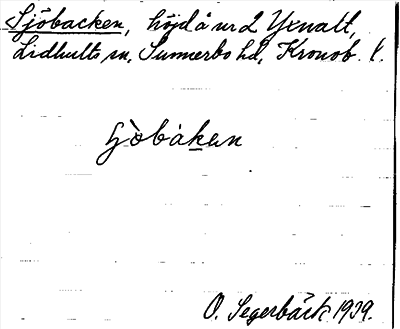 Sjöbacken, höjd å nr 2 Yxnalt,
Lidhults sn, Sunnerbo hd, Kronob. l.
ʃɔ̀bàken
O. Segerbäck 1939.